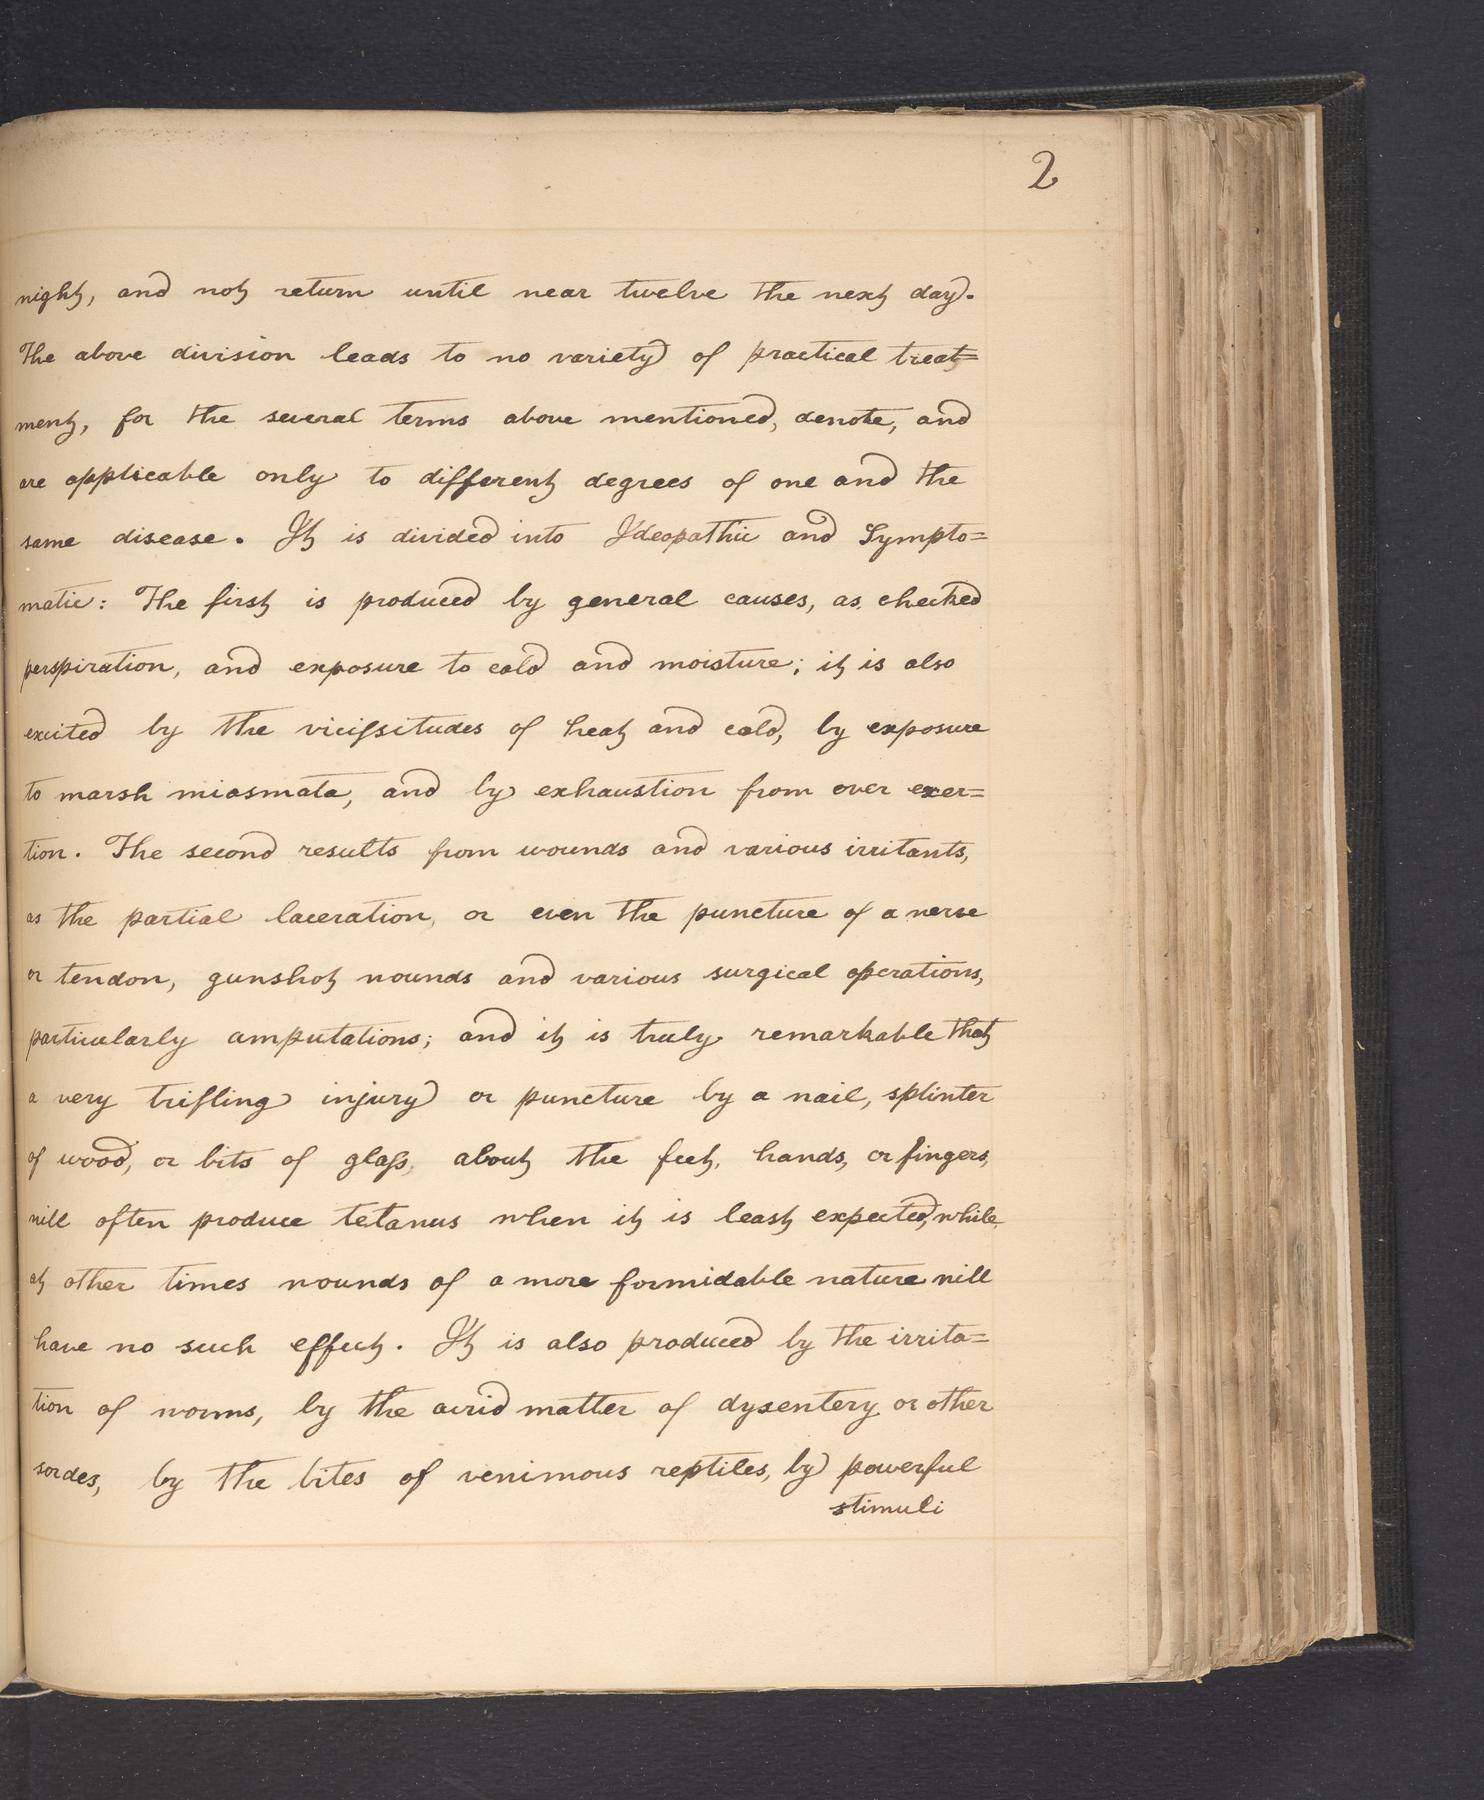 2
night, and not return until near twelve the next day.
The above division leads to no variety of practical treat=
ment, for the several terms above mentioned, denote, and
are applicable only to different degrees of one and the
same disease. It is divided into Ideopathic and Sympto=
matic: The first is produced by general causes, as checked
perspiration, and exposure to cold and moisture; it is also
excited by the vicissitudes of heat and cold, by exposure
to marsh miasmata, and by exhaustion from over exer=
tion. The second results from wounds and various irritants,
as the partial laceration, or even the puncture of a nerve
or tendon, gunshot wounds and various surgical operations,
particularly amputations; and it is truly remarkable that
a very trifling injury or puncture by a nail, splinter
of wood, or bits of glass, about the feet, hands, or fingers,
will often produce tetanus when it is least expected, while
at other times wounds of a more formidable nature will
have no such effect. It is also produced by the irrita=
tion of worms, by the acrid matter of dysentery or other
sordes, by the bites of venimous reptiles, by powerful
stimuli